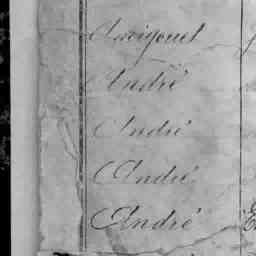 André
André
André
André